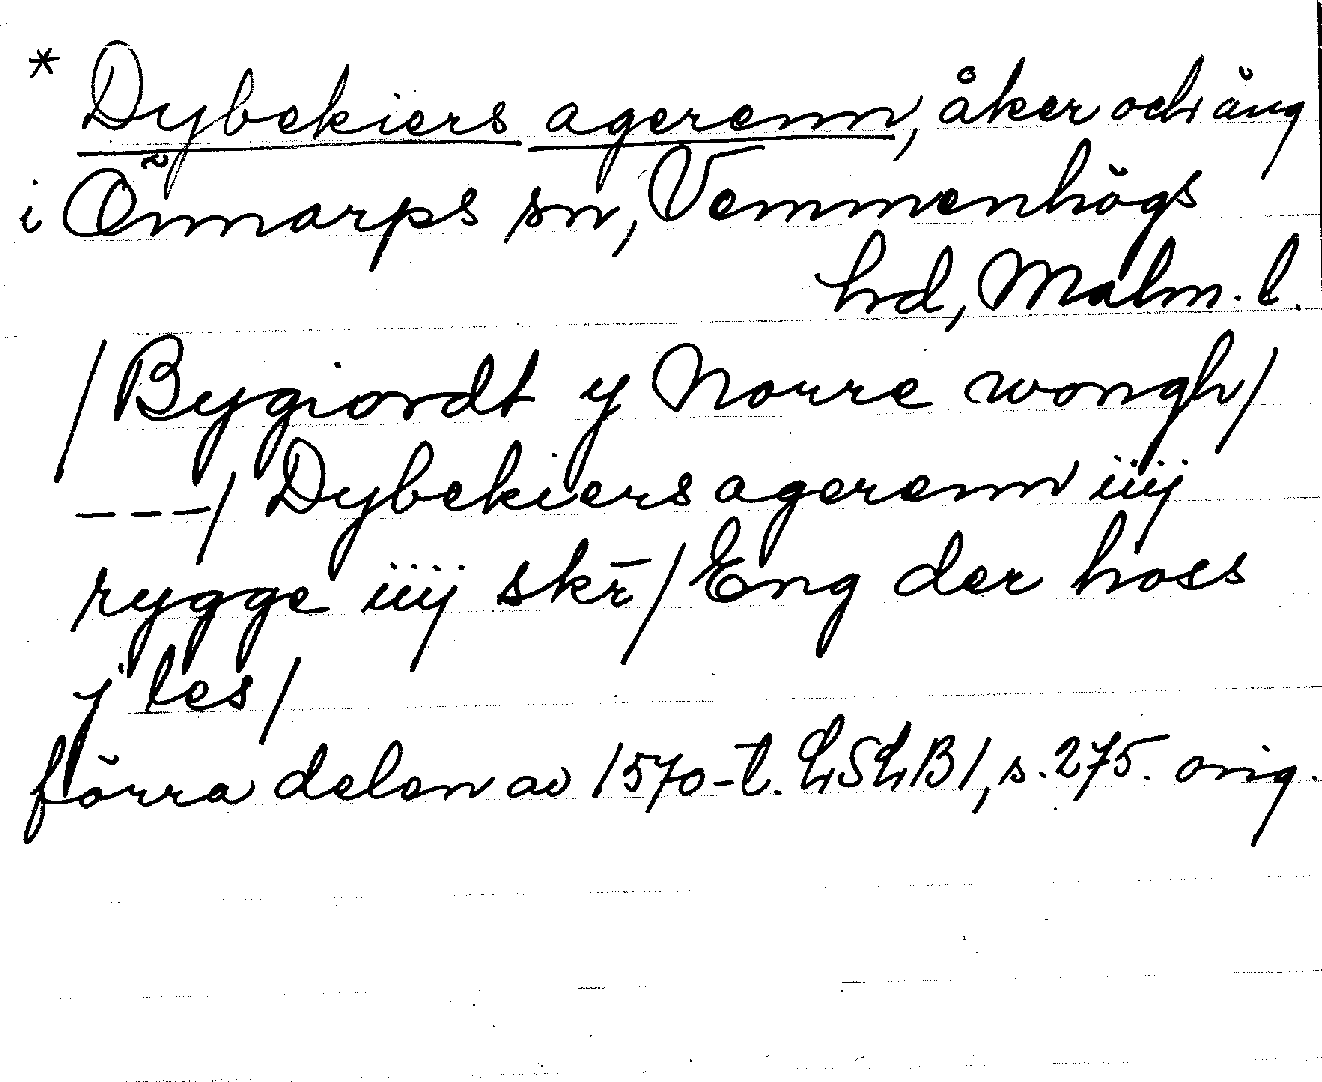 * Dybekiers agerenn, åker och äng
i Önnarps sn, Vemmenhögs
hd, Malm. l.
/Bygiordt y Norre wongh/
---/ Dybekiers agerenn iiij
rygge iiij skr̄/ Eng der hoss
j les/
förra delen av 1570-t. LSLB1, s. 275. orig.